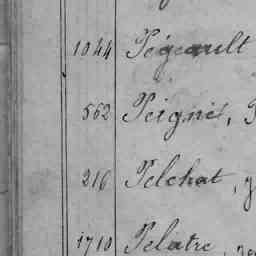 1044 Pégeault
562 Peigné,
216 Pelchat,
1710 Pelatre,